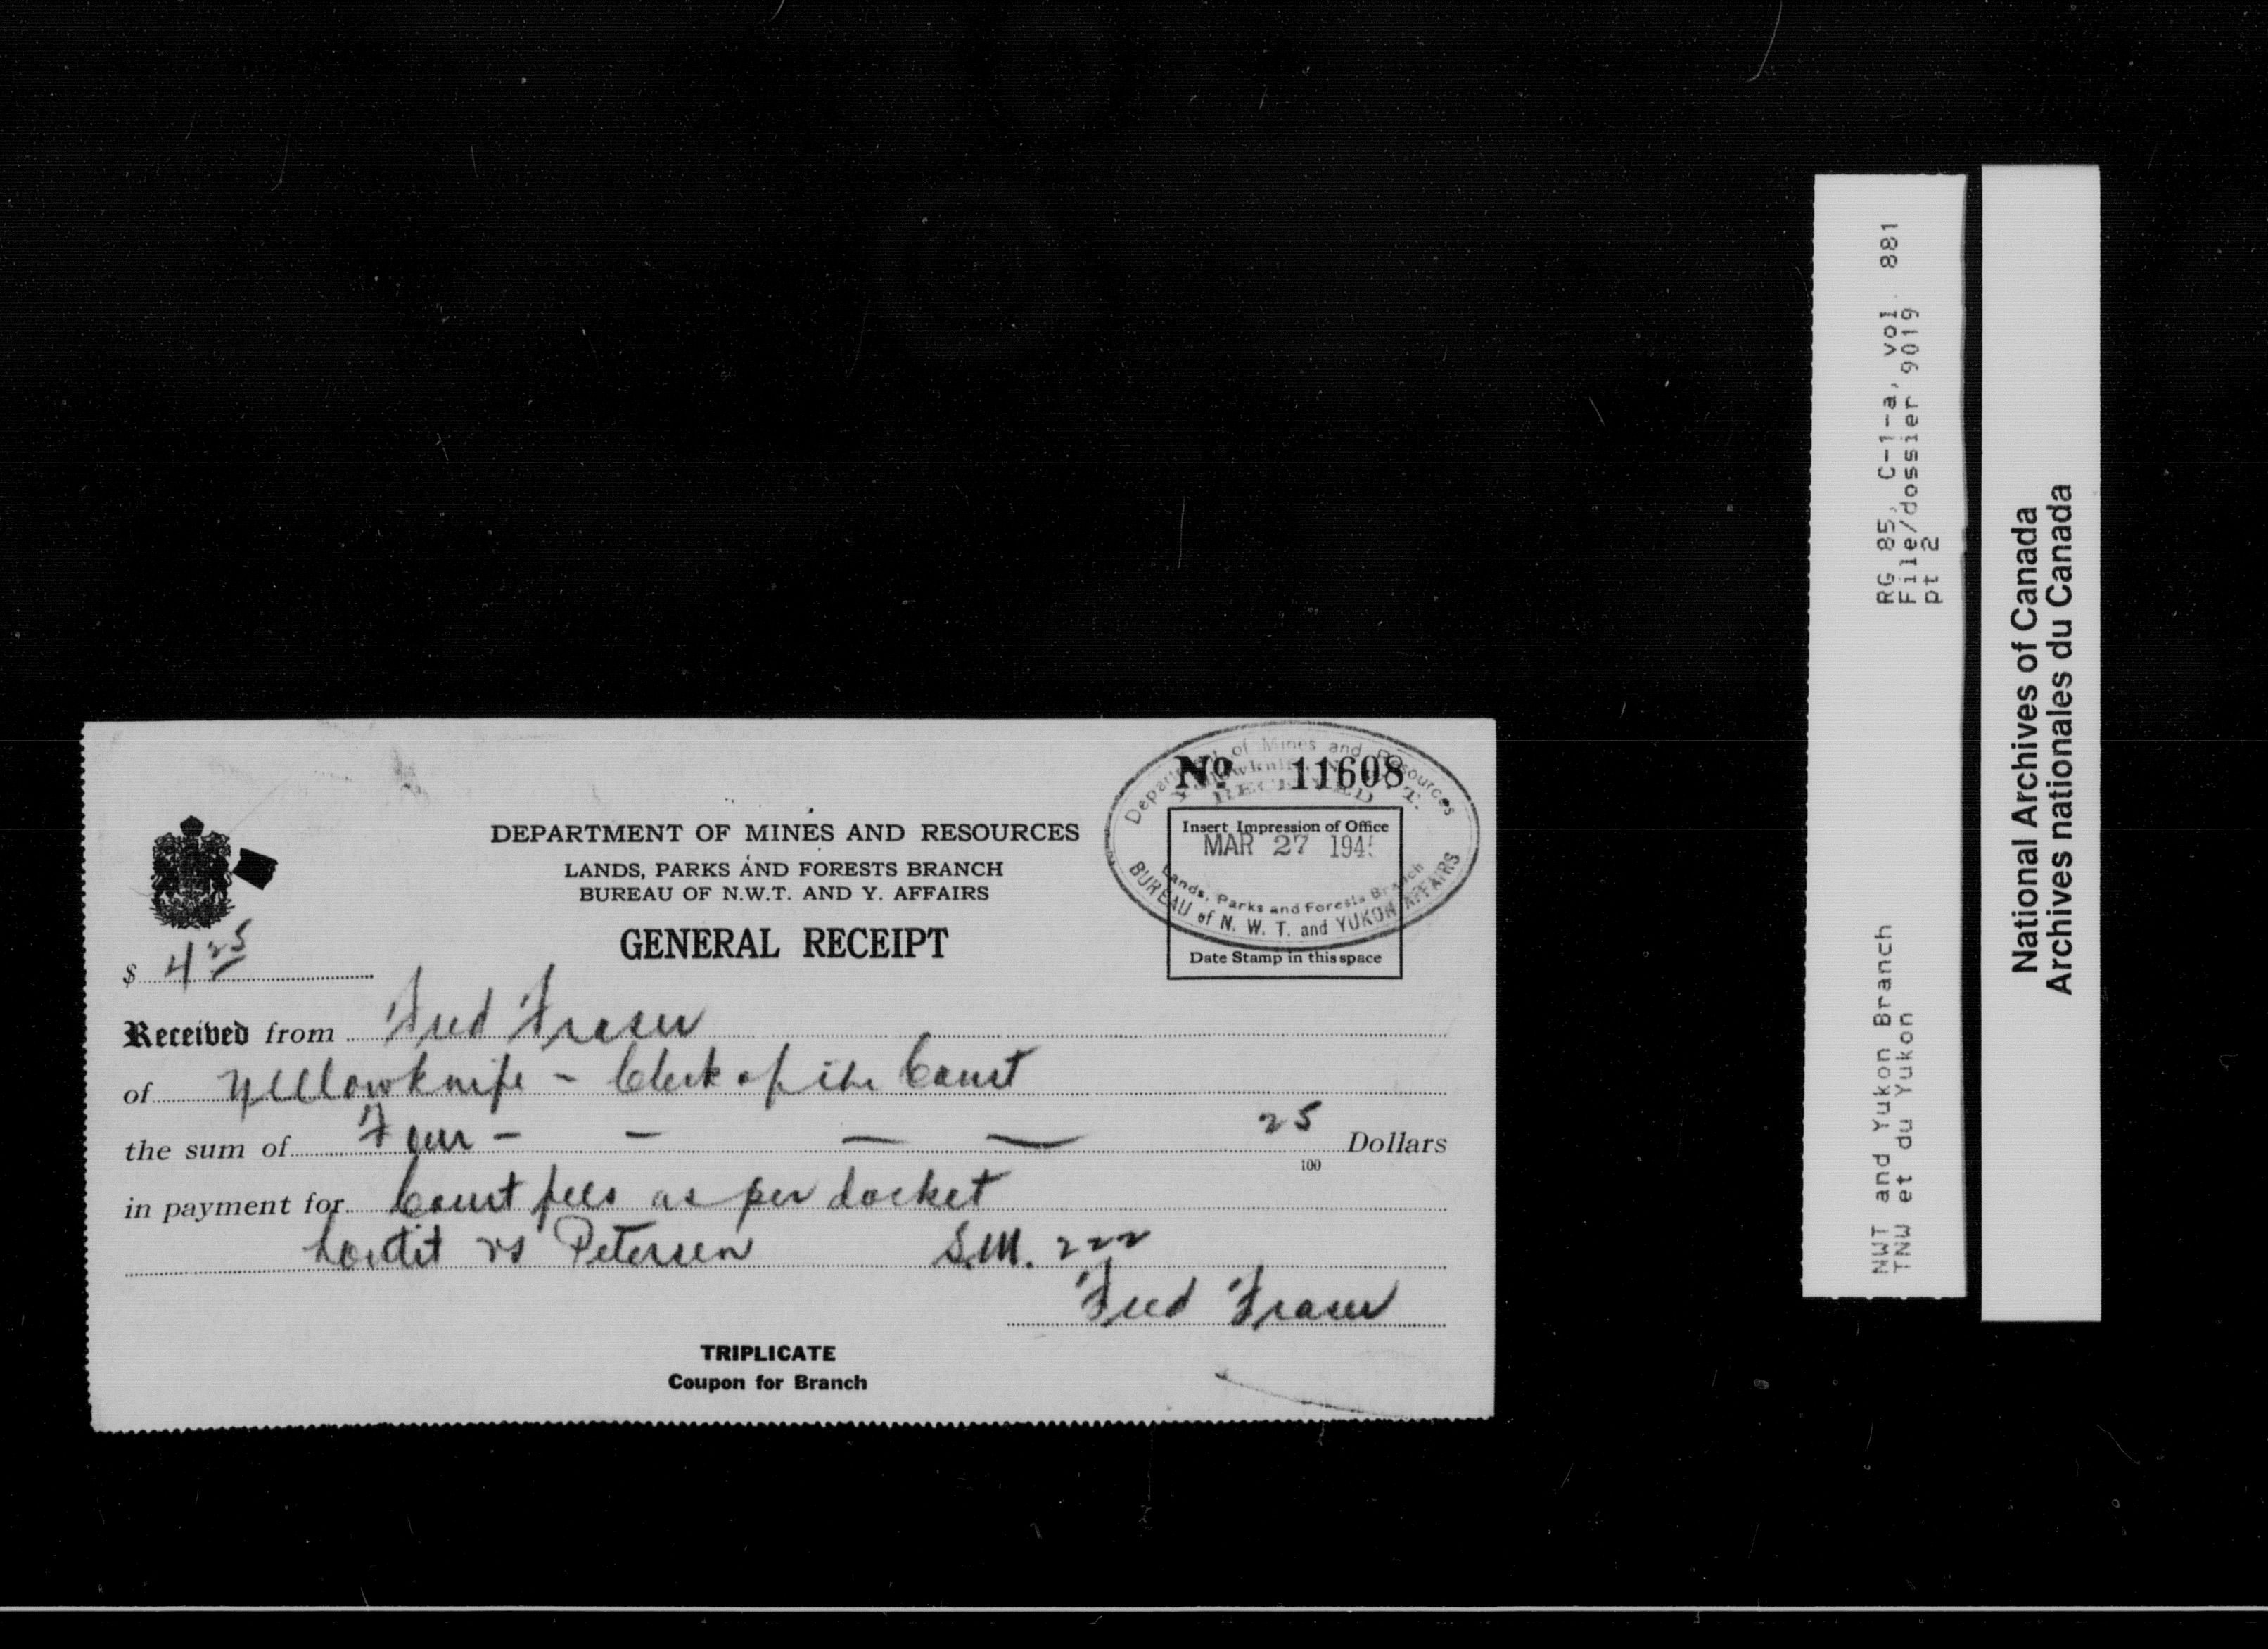 Nº 11608
Department of Mines and Resources
Yellowknife, N.W.T.
RECEIVED
Insert Impression of Office
MAR 27 194
Lands, Parks and Forests Branch
BUREAU of N. W. T. and YUKON AFFAIRS
Date Stamp in this space
DEPARTMENT OF MINES AND RESOURCES
LANDS, PARKS AND FORESTS BRANCH
BUREAU OF N.W.T. AND Y. AFFAIRS
GENERAL RECEIPT
$ 4 25
Received from Fred Fraser
of Yellowknife - Clerk of the Court
the sum of Four - - - - 25/100 Dollars
in payment for Court fees as per docket
Loutit vs Petersen S.M. 222
Fred Fraser
TRIPLICATE
Coupon for Branch
NWT and Yukon Branch RG 85, C-1-a, vol. 881
TNW et du Yukon File/dossier 9019
pt 2
National Archives of Canada
Archives nationales du Canada